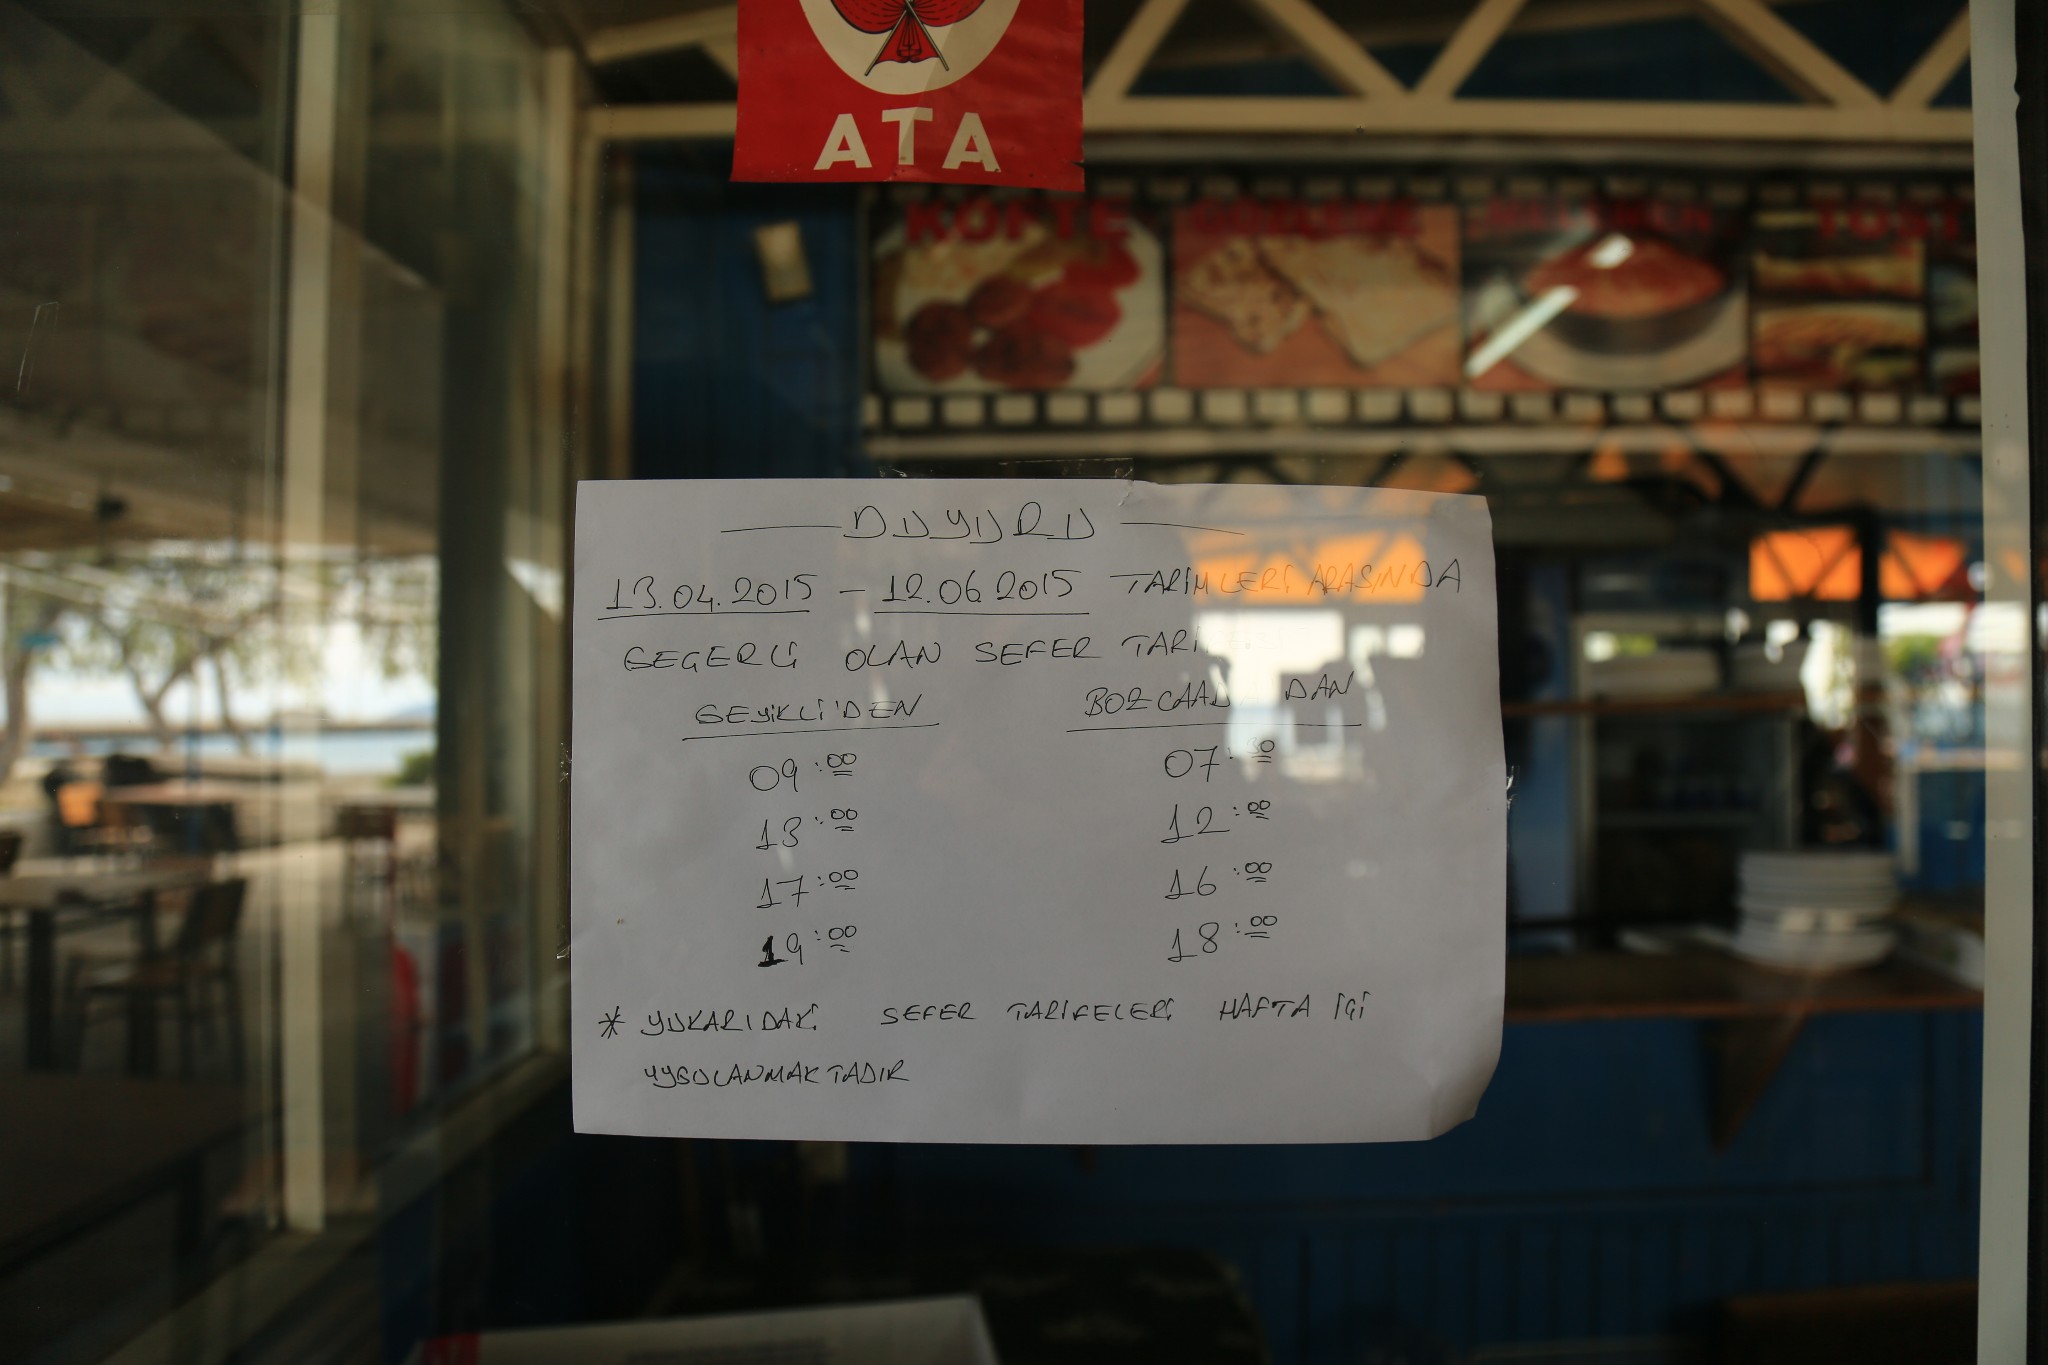 ATA
KÖFTE
TOST
DUYURU
13.04.2015 – 12.06.2015 TARİHLERİ ARASINDA
GEÇERLİ OLAN SEFER
GEYİKLİ'DEN BOZCAADA DAN
09:00 07:30
13:00 12:00
17:00 16:00
19:00 18:00
* YUKARIDAKİ SEFER TARİFELERİ HAFTA İÇİ
UYGULANMAKTADIR